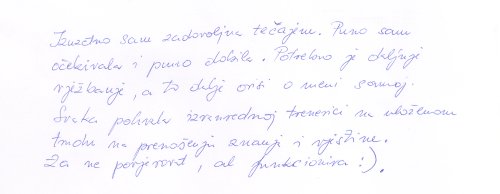 Izuzetno sam zadovoljna tečajem. Puno sam
očekivala i puno dobila. Potrebno je daljnje
vježbanje, a to dalje ovisi o meni samoj.
Svaka pohvala izvanrednoj trenerici na uloženom
trudu na prenošenju znanja i vještine.
Za ne povjerovat, al funkcionira :).